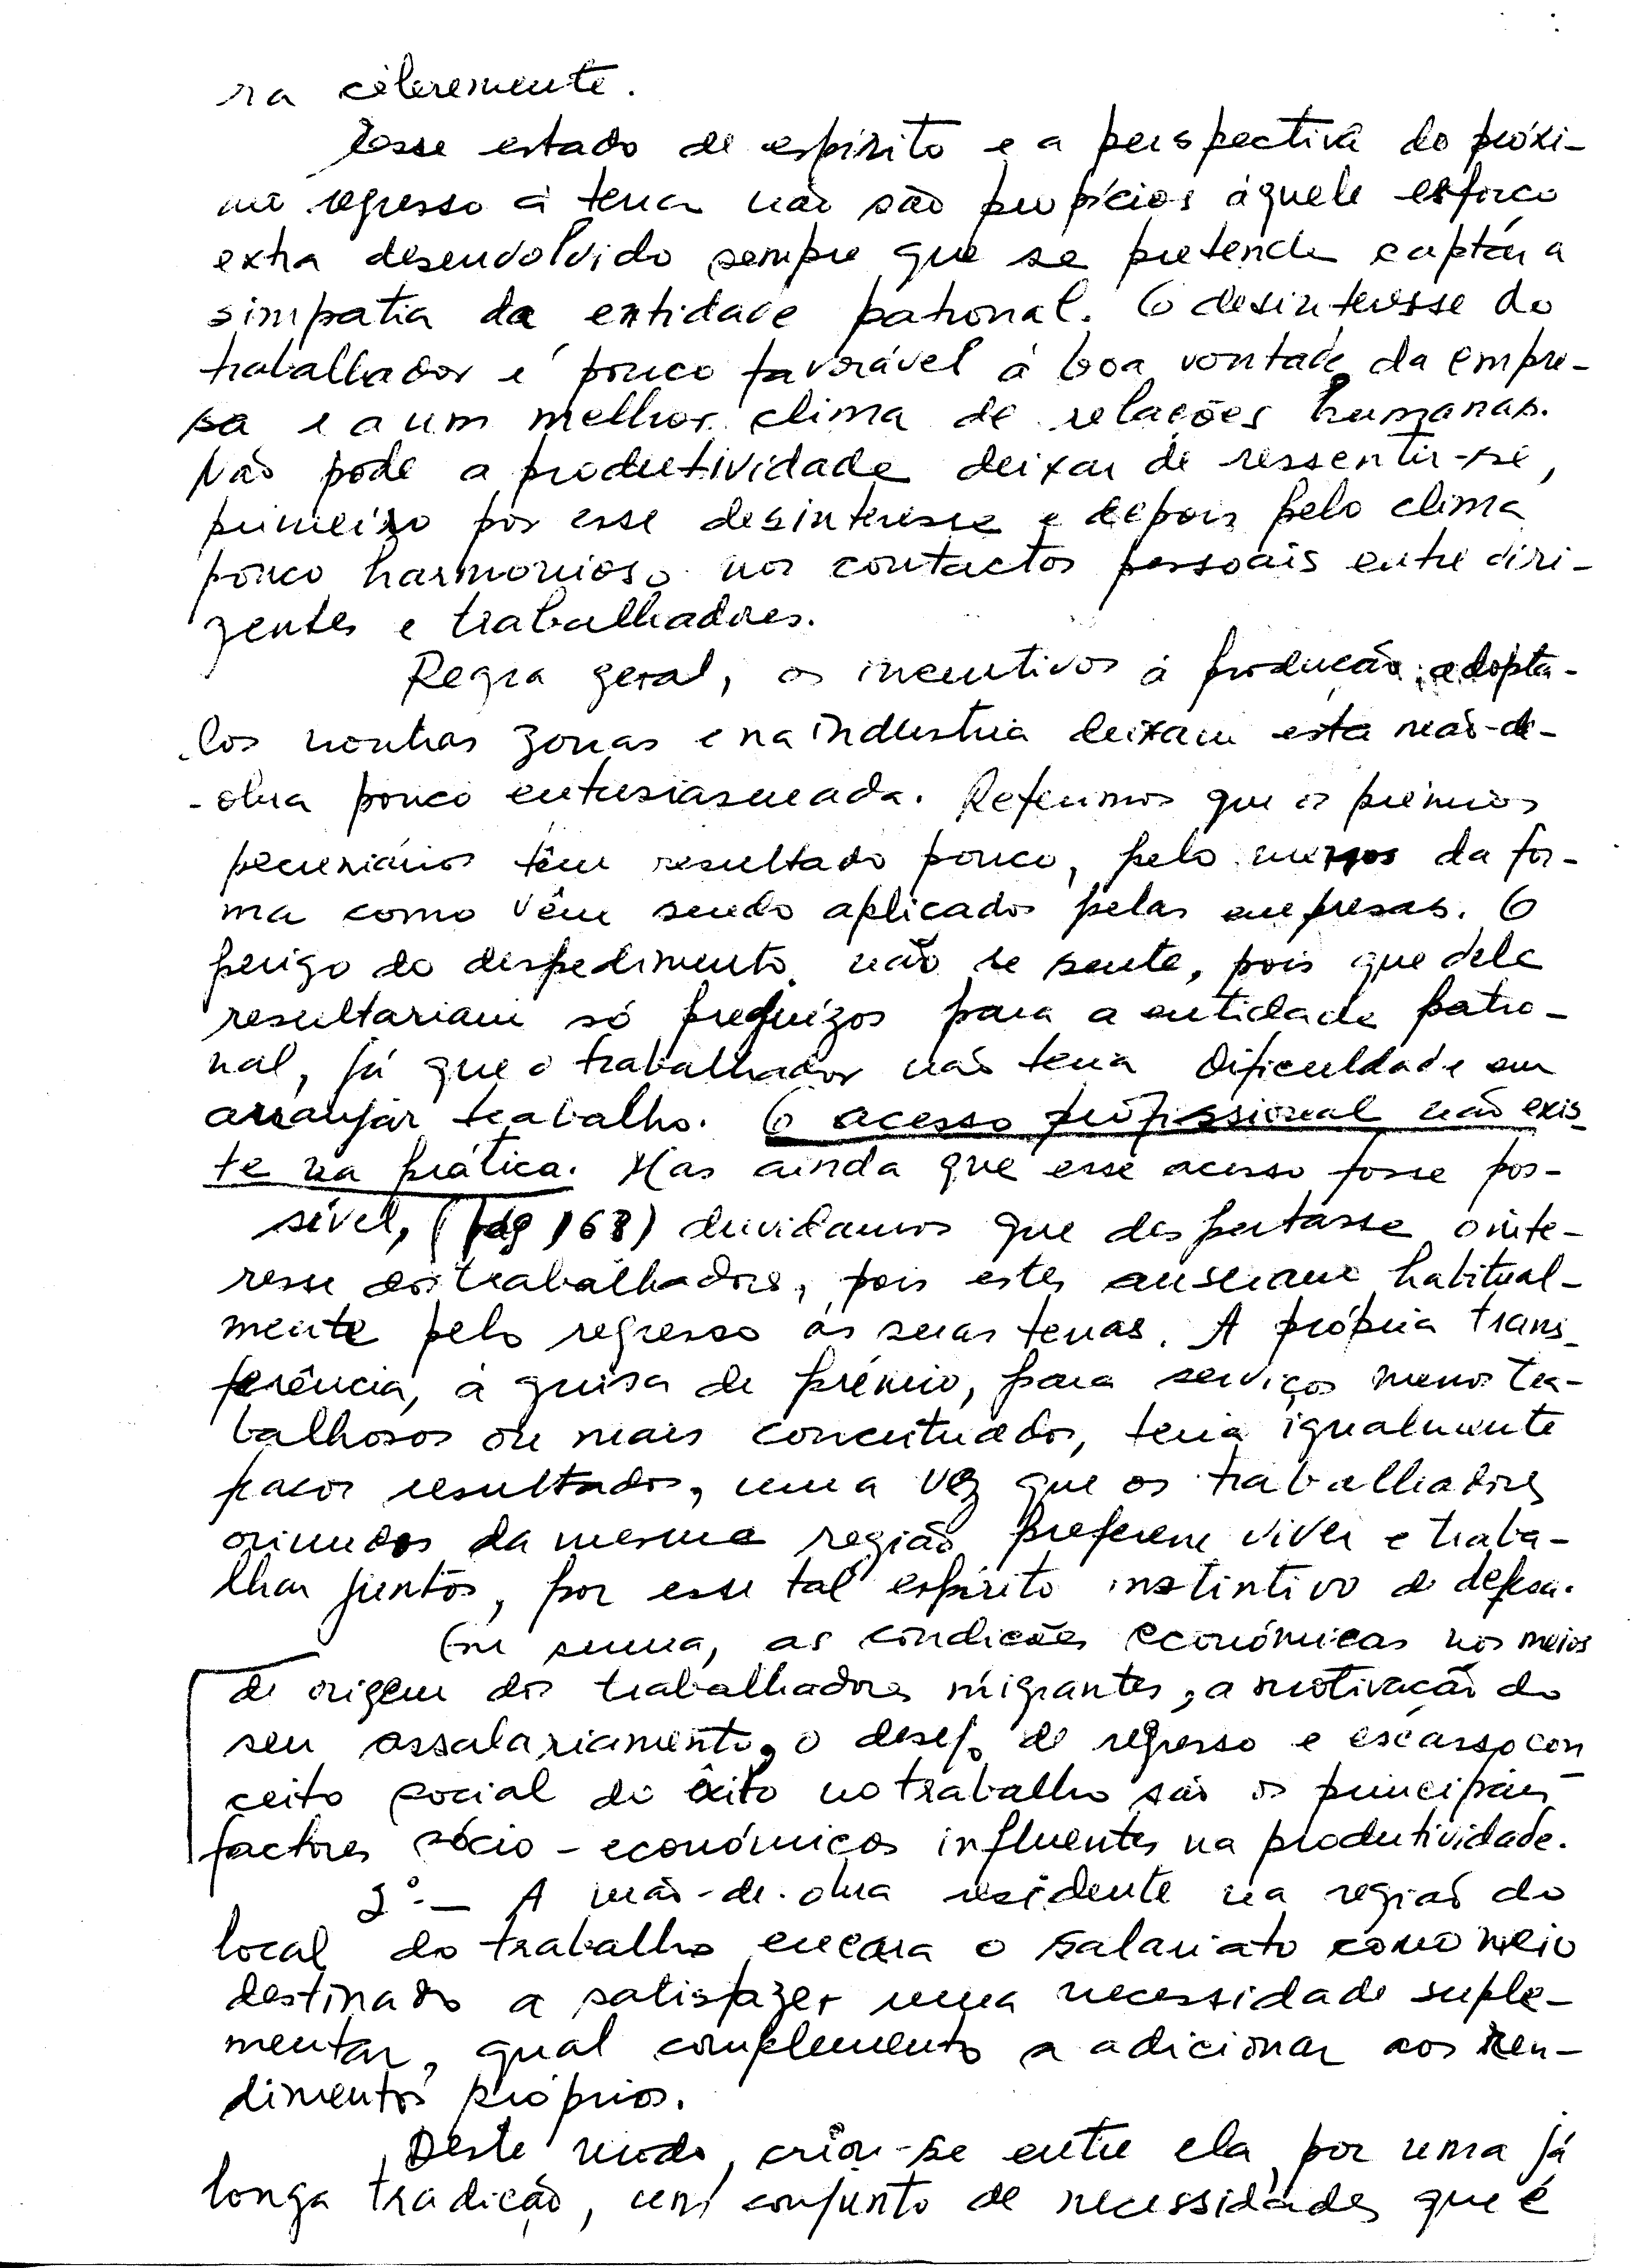 ra céleremente.
Esse estado de espírito e a perspectiva do próxi-
mo regresso à terra não são propícios àquele esforço
extra desenvolvido sempre que se pretende captar a
simpatia da entidade patronal. O desinteresse do
trabalhador é pouco favorável à boa vontade da empre-
sa e a um melhor clima de relações humanas.
Não pode a productividade deixar de ressentir-se,
primeiro por esse desinteresse e depois pelo clima
pouco harmonioso nos contactos pessoais entre diri-
gentes e trabalhadores.
Regra geral, os incentivos à produção adopta-
dos noutras zonas e na indústria deixam esta mão-de-
-obra pouco entusiasmada. Referimos que os prémios
pecuniários têm resultado pouco, pelo menos da for-
ma como vêm sendo aplicados pelas empresas. O
perigo do despedimento não se sente, pois que dele
resultariam só prejuízos para a entidade patro-
nal, já que o trabalhador não teria dificuldade em
arranjar trabalho. O acesso profissional não exis
te na prática. Mas ainda que esse acesso fosse pos-
sível, (pág 168) duvidamos que despertasse o inte-
resse dos trabalhadores, pois estes anseiam habitual-
mente pelo regresso às suas terras. A própria trans-
ferência, à guisa de prémio, para serviços menos tra-
balhosos ou mais conceituados, teria igualmente
fracos resultados, uma vez que os trabalhadores
oriundos da mesma região preferem viver e traba-
lhar juntos, por esse tal espírito instintivo de defesa.
Em suma, as condições económicas nos meios
de origem dos trabalhadores migrantes, a motivação do
seu assalariamento, o desejo de regresso e escasso con
ceito social do êxito no trabalho são os principais
factores sócio-económicos influentes na produtividade.
2º.— A mão-de-obra residente na região do
local do trabalho encara o salariato como meio
destinado a satisfazer uma necessidade suple-
mentar, qual complemento a adicionar aos ren-
dimentos próprios.
Deste modo, criou-se entre ela, por uma já
longa tradição, um conjunto de necessidades que é